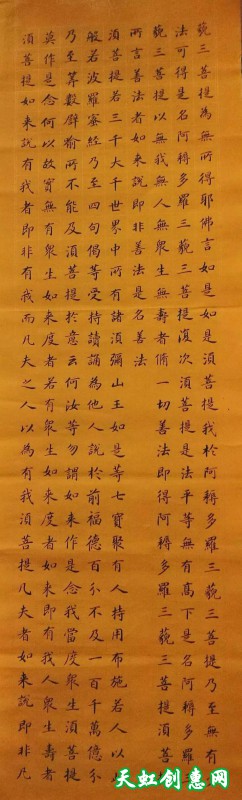 藐三菩提為無所得耶佛言如是如是須菩提我於阿耨多羅三藐三菩提乃至無有少
法可得是名阿耨多羅三藐三菩提復次須菩提是法平等無有高下是名阿耨多羅三
藐三菩提以無我無人無眾生無壽者脩一切善法即得阿耨多羅三藐三菩提須菩提
所言善法者如來說即非善法是名善法
須菩提若三千大千世界中所有諸須彌山王如是等七寶聚有人持用布施若人以此
般若波羅蜜經乃至四句偈等受持讀誦為他人說於前福德百分不及一百千萬億分
乃至算數譬喻所不能及須菩提於意云何汝等勿謂如來作是念我當度眾生須菩提
莫作是念何以故實無有眾生如來度者若有眾生如來度者如來即有我人眾生壽者
須菩提如來說有我者即非有我而凡夫之人以為有我須菩提凡夫者如來說即非凡
天虹创惠网